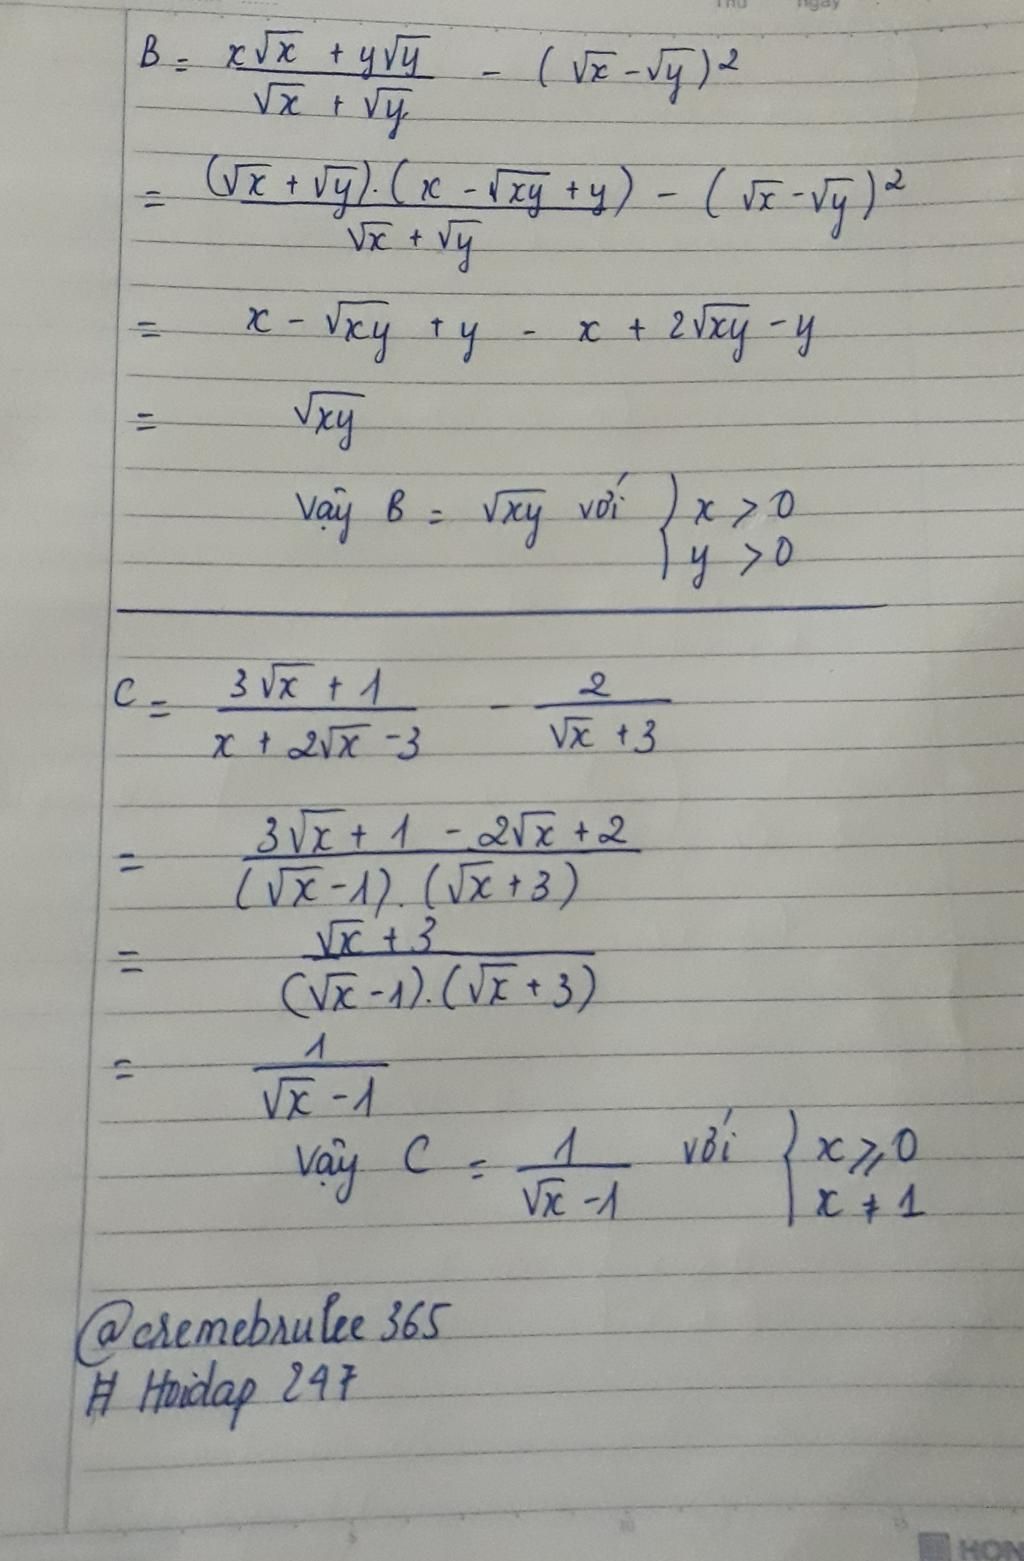 Thứ ngày
B = (x√x + y√y)/(√x + √y) - (√x - √y)²
= ((√x + √y).(x - √xy + y))/(√x + √y) - (√x - √y)²
= x - √xy + y - x + 2√xy - y
= √xy
Vậy B = √xy với { x > 0
y > 0
C = (3√x + 1)/(x + 2√x - 3) - 2/(√x + 3)
= (3√x + 1 - 2√x + 2)/((√x - 1).(√x + 3))
= (√x + 3)/((√x - 1).(√x + 3))
= 1/(√x - 1)
Vậy C = 1/(√x - 1) với { x ⩾ 0
x ≠ 1
@cremebrulee 365
# Hoidap 247
5 10 15
HON